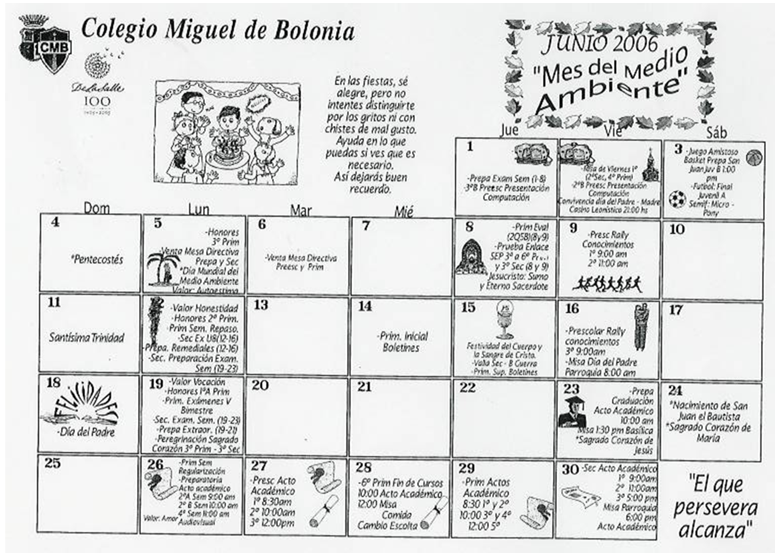 CMB
Colegio Miguel de Bolonia
De La Salle
100
En las fiestas, sé
alegre, pero no
intentes distinguirte
por los gritos ni con
chistes de mal gusto.
Ayuda en lo que
puedas si ves que es
necesario.
Así dejarás buen
recuerdo.
JUNIO 2006
"Mes del Medio
Ambiente"
Jue
Vie
Sáb
1
-Prepa Exam Sem (1-8)
-3ºB Preesc Presentación
Computación
-Misa de Viernes 1º
(2ªSec, 4º Prim)
-2ºB Preesc Presentación
Computación
Convivencia día del Padre - Madre
Casino Leonístico 21:00 hs
3
-Juego Amistoso
Basket Prepa San
Juan Juv B 1:00
pm
-Futbol: Final
Juvenil A
Semif: Micro -
Pony
Dom
Lun
Mar
Mié
4
*Pentecostés
5
-Honores
3º Prim
-Venta Mesa Directiva
Prepa y Sec
*Día Mundial del
Medio Ambiente
Valor: Autoestima
6
-Venta Mesa Directiva
Preesc y Prim
7
8
-Prim Eval
(2Q5B)(8y9)
-Prueba Enlace
SEP 3º a 6º Prim
y 3º Sec (8 y 9)
Jesucristo: Sumo
y Eterno Sacerdote
9
-Presc Rally
Conocimientos
1º 9:00 am
2º 11:00 am
10
11
Santísima Trinidad
12
-Valor Honestidad
-Honores 2º Prim.
-Prim Sem. Repaso.
-Sec Ex UB(12-16)
-Prepa. Remediales (12-16)
-Sec. Preparación Exam.
Sem (19-23)
13
14
-Prim. Inicial
Boletines
15
Festividad del Cuerpo y
la Sangre de Cristo.
-Valla Sec - B Guerra
-Prim. Sup. Boletines
16
-Prescolar Rally
conocimientos
3º 9:00am
-Misa Día del Padre
Parroquia 8:00 am
17
18
FELICIDADES
-Día del Padre
19
-Valor Vocación
-Honores 1ºA Prim
-Prim. Exámenes V
Bimestre
-Sec. Exam. Sem. (19-23)
-Prepa Extraor. (19-21)
-Peregrinación Sagrado
Corazón 3º Prim - 3º Sec
20
21
22
23
-Prepa
Graduación
Acto Académico
10:00 am
Misa 1:30 pm Basílica
*Sagrado Corazón de
Jesús
24
*Nacimiento de San
Juan el Bautista
*Sagrado Corazón de
María
25
26
-Prim Sem
Regularización
-Preparatoria
Acto académico
2ºA Sem 9:00 am
2º B Sem 10:00 am
4º Sem 11:00 am
Valor: Amor Audiovisual
27
-Presc Acto
Académico
1º 8:30am
2º 10:00am
3º 12:00pm
28
-6º Prim Fin de Cursos
10:00 Acto Académico
12:00 Misa
Comida
Cambio Escolta
29
-Prim Actos
Académicos
8:30 1º y 2º
10:00 3º y 4º
12:00 5º
30
-Sec Acto Académico
1º 9:00am
2º 11:00am
3º 5:00 pm
Misa Parroquia
6:00 pm
Acto Académico
"El que
persevera
alcanza"